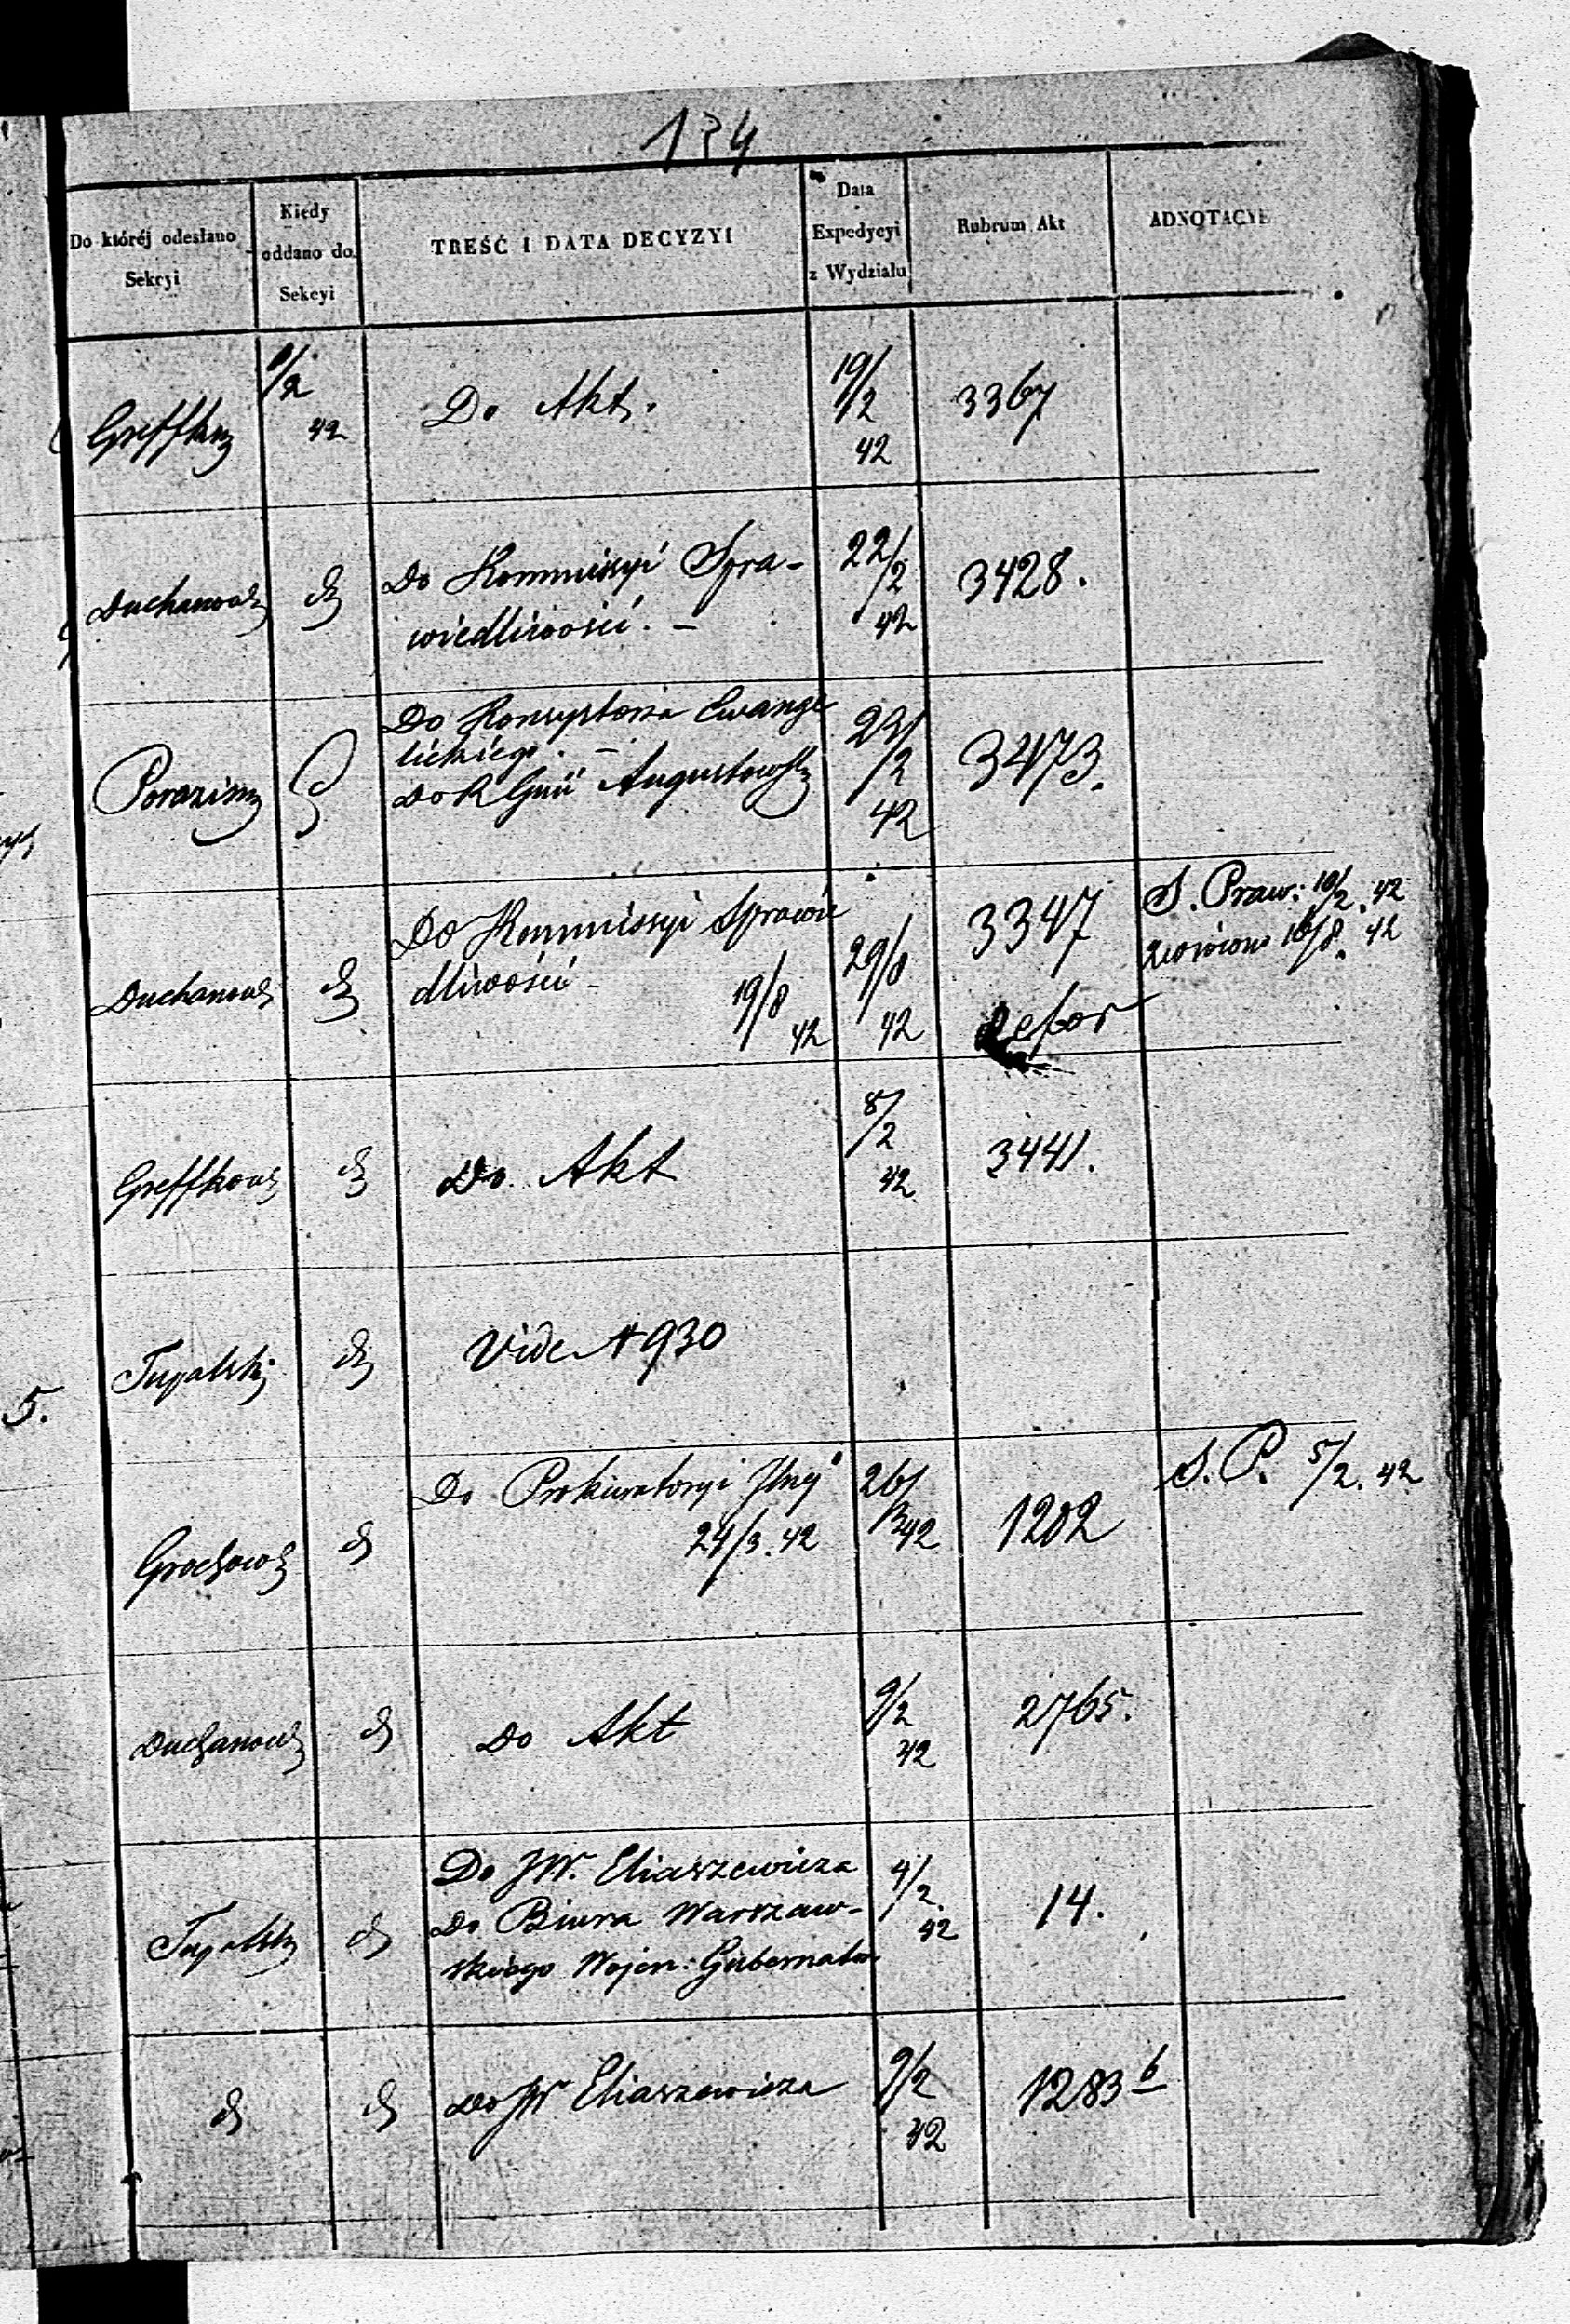 134
Do któréj odesłano Sekcyi
Kiedy oddano do Sekcyi
TREŚĆ I DATA DECYZYI
Data Expedycyi z Wydziału
Rubrum Akt
ADNOTACYE
/2 42
Do Akt.
19/2 42
3367
Duchanows
Do Kommissyi Spra-
wiedliwości. -
22/2 42
3428.
Do Konsystorza Ewange
lickiego. -
Do R Gnii Augustowsk
/2 42
3473.
Duchanows
Do Kommissyi Sprawie
dliwości -
19/8 42
29/8 42
3347
S. Praw: 10/2. 42
zwrócono 16/8. 42
Greffkows
Do Akt
8/2 42
3441.
Tupalski
Vide N 930
Do Prokuratoryi
24/3. 42
26/3 42
1202
S. P. 5/2. 42
Grochows
Duchanows
Do Akt
9/2 42
2765.
Tupalsk
Do JW. Eliaszewicza
Do Biura Warszaw-
skiego Wojen: Gubernator
4/2 42
14.
Do JW Eliaszewicza
9/2 42
1283 b
5.